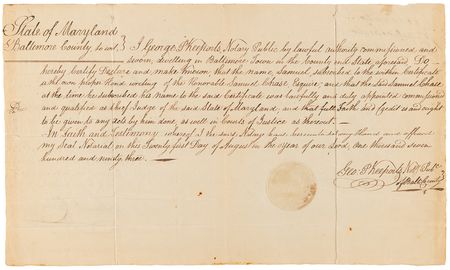 State of Maryland
Baltimore County, to wit,
I George P Keeports Notary Public by lawful authority commissioned and
sworn, dwelling in Baltimore Town in the County and State aforesaid Do
hereby Certify Declare and make known that the name, Samuel subscribed to the within Certificate
is the own proper Hand writing of the Honorable Samuel Chase, Esquire, and that the said Samuel Chase
at the time he subscribed his Name to the said Certificate was lawfully and duly appointed commissioned
and qualified as chief Judge of the said State of Maryland and that full Faith and Credit is and ought
to be given to any acts by him done, as well in Courts of Justice as thereout.
In Truth and Testimony whereof I the said Notary have hereunto set my Hand and affixed
my Seal Notarial on this Twenty first Day of August in the Year of our Lord, One thousand seven
hundred and ninety three.
Geo. P Keeports Noty Pubc
of Balt County